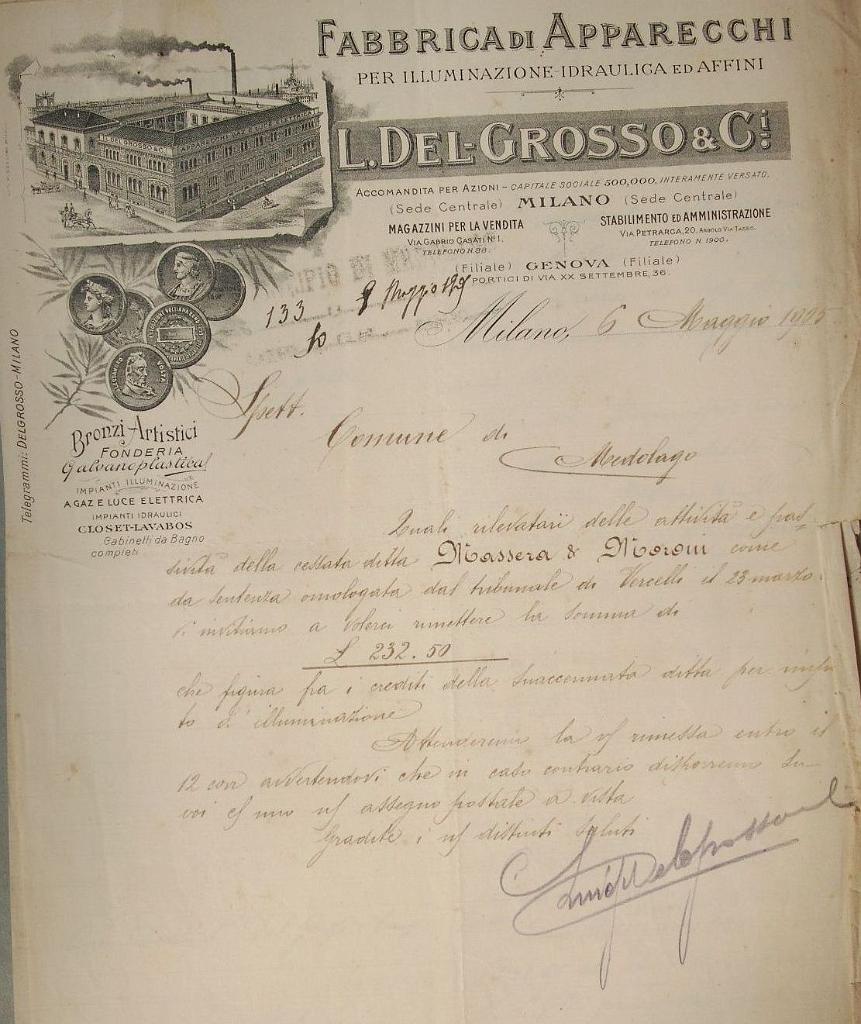 FABBRICA DI APPARECCHI
PER ILLUMINAZIONE-IDRAULICA ED AFFINI
L. DEL-GROSSO & C.i
L. DEL GROSSO & C.
ACCOMANDITA PER AZIONI - CAPITALE SOCIALE 500,000, INTERAMENTE VERSATO.
(Sede Centrale) MILANO (Sede Centrale)
MAGAZZINI PER LA VENDITA
VIA GABRIO CASATI N. 1.
TELEFONO N. 88.
STABILIMENTO ED AMMINISTRAZIONE
VIA PETRARCA, 20. ANGOLO VIA TASSO.
TELEFONO N. 1900.
(Filiale) GENOVA (Filiale)
PORTICI DI VIA XX SETTEMBRE, 36.
133
Milano, 6 Maggio 1905
Spett.
Comune di
Medolago
VOLTA
Bronzi Artistici
FONDERIA
Galvanoplastica
IMPIANTI ILLUMINAZIONE
A GAZ E LUCE ELETTRICA
IMPIANTI IDRAULICI
CLOSET-LAVABOS
Gabinetti da Bagno
completi
Telegrammi: DELGROSSO-MILANO
Quali rilevatarii delle attività e pas-
sività della cessata ditta Massera & Moroni come
da sentenza omologata dal tribunale di Vercelli il 23 marzo
Vi invitiamo a volerci rimettere la somma di
£ 232.50
che figura fra i crediti della suaccennata ditta per
to d'illuminazione
Attenderemo la rimessa entro il
12 corr avvertendovi che in caso contrario disporremo su
voi assegno postale a vista
Gradite i distinti saluti